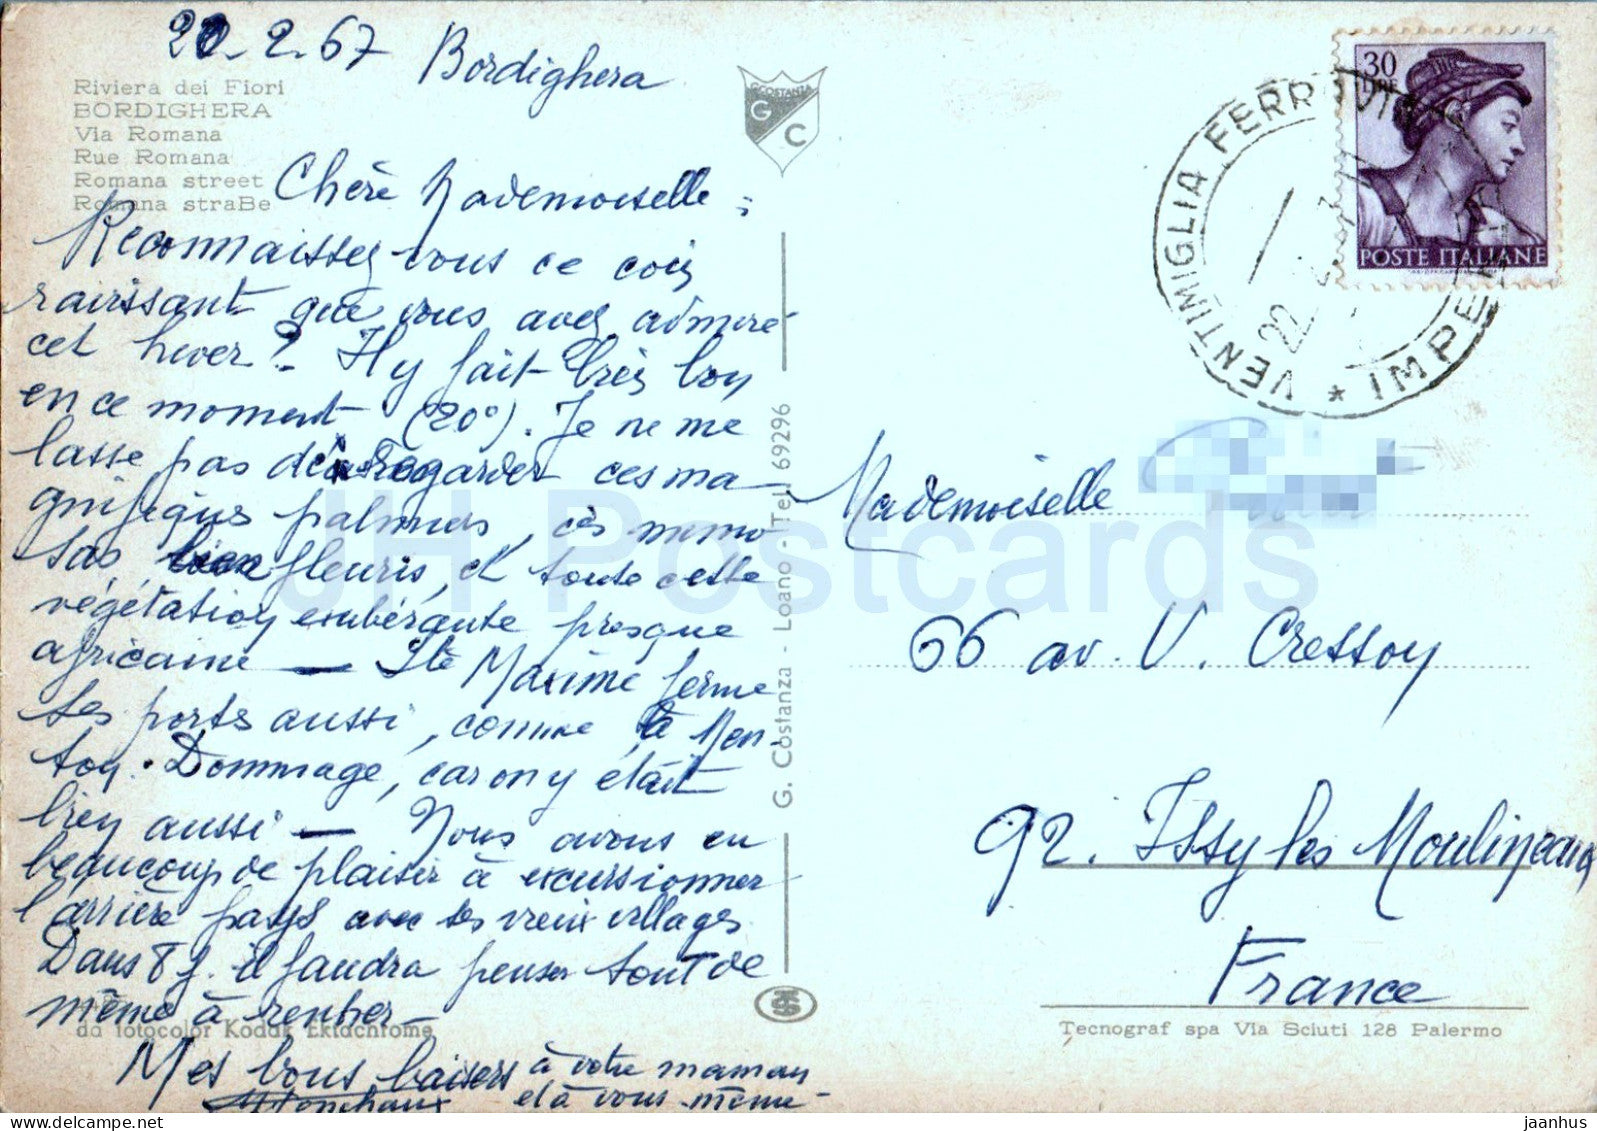 22.2.67 Bordighera
Riviera dei Fiori
BORDIGHERA
Via Romana
Rue Romana
Romana street
Romana straBe
G.COSTANZA
G
C
Chère Mademoiselle :
Reconnaissez vous ce coin
ravissant que vous avez admiré
cet hiver? Il y fait très bon
en ce moment (20°). Je ne me
lasse pas de regarder ces ma
gnifiques palmiers, ces mimo
sas fleuris, et toute cette
végétation exubérante presque
africaine — Ste Maxime ferme
ses portes aussi, comme à Men-
ton. Dommage, car on y était
bien aussi — Nous avons eu
beaucoup de plaisir à excursionner
l'arrière pays avec ses vieux villages
Dans 8 j. il faudra penser tout de
même à rentrer —
da fotocolor Kodak Ektachrome
Mes bons baisers à votre maman
et à vous-même -
G. Costanza - Loano - Tel. 69296
30
LIRE
POSTE ITALIANE
VENTIMIGLIA FERROVIA
* IMPERIA
22
Mademoiselle
66 av. V. Cresson
92. Issy les Moulineaux
France
Tecnograf spa Via Sciuti 128 Palermo
JH Postcards
jaanhus @ delcampe.net